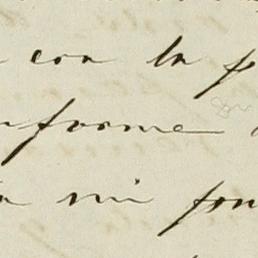 con la p
nforme
mi fon